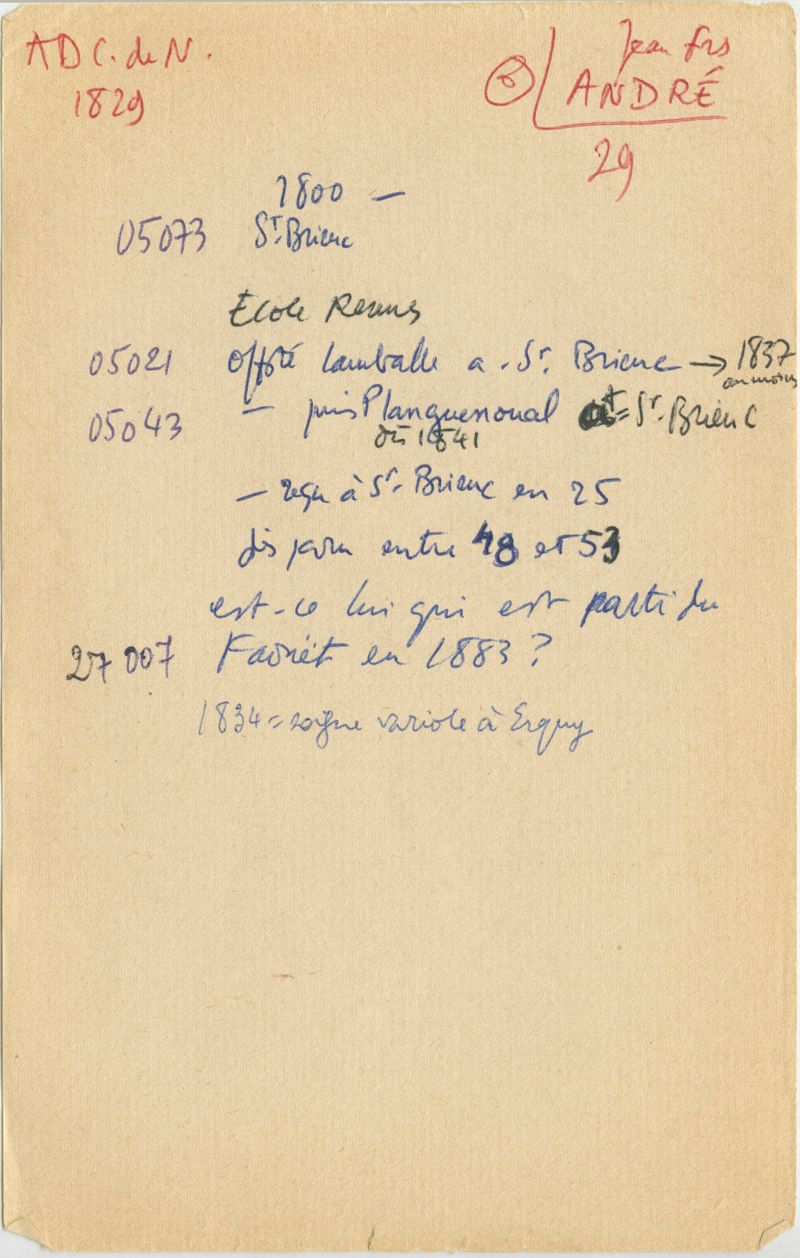 AD C. de N.
1829
Jean Frs
ANDRÉ
29
1800 —
05073 St. Brieuc
École Rennes
05021 offté Lamballe a. St. Brieuc → 1837
au moins
05043 — puis Planguenoual at = St. Brieuc
dès 1841
— reçu à St. Brieuc en 25
disparu entre 48 et 53
est-ce lui qui est parti du
27007 Faouët en 1883 ?
1834 = soigne variole à Erquy